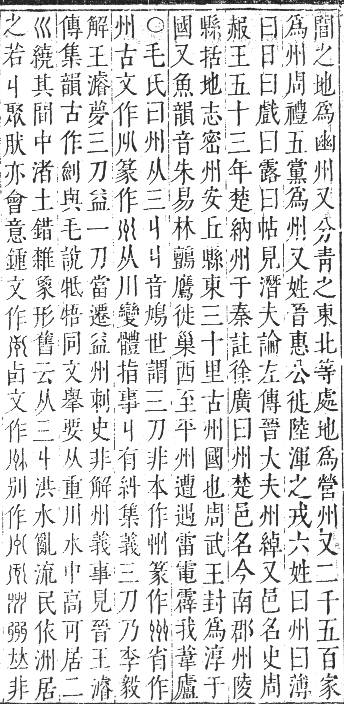 間之地爲幽州又分靑之東北等處地爲營州又二千五百家
爲州周禮五黨爲州又姓晉惠公徙陸渾之戎六姓曰州曰薄
曰曰戲曰露曰帖見潛夫論左傳晉大夫州綽又邑名史周
赧王五十三年楚納州于秦註徐廣曰州楚邑名今南郡州陵
縣括地志密州安丘縣東三十里古州國也周武王封爲淳于
國又魚韻音朱易林鸇鷹徙巢西至平州遭遇雷電霹我葦廬
○毛氏曰州从三丩丩音鳩世謂三刀非本作州篆作省作
州古文作篆作从川變體指事丩有糾集義三刀乃李毅
解王濬夢三刀益一刀當遷益州刺史非解州義事見晉王濬
傳集韻古作與毛說牴牾同文舉要从重川水中高可居二
巛繞其間中渚土錯雜象形舊云从三丩洪水亂流民依洲居
之若丩聚肰亦會意鍾文作卣文作別作非